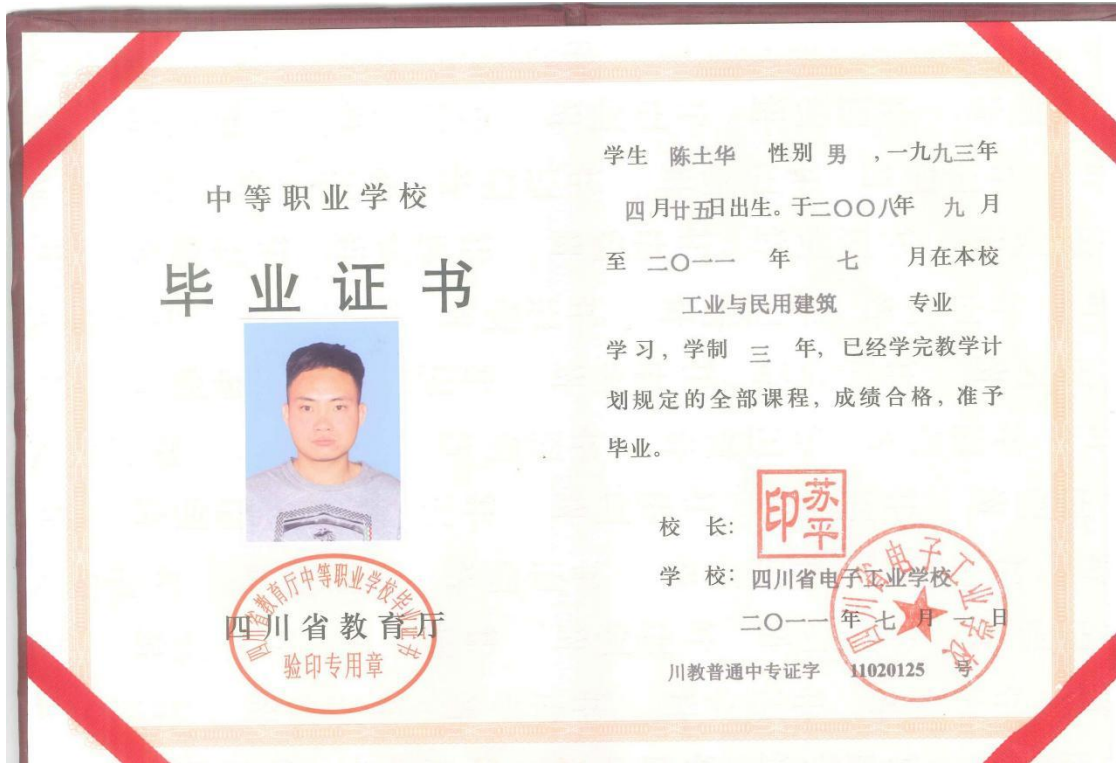 中等职业学校
毕业证书
四川省教育厅中等职业学校毕业证书
四川省教育厅
验印专用章
学生 陈土华 性别 男 ,一九九三年
四月廿五日出生。于二〇〇八年 九 月
至 二〇一一 年 七 月在本校
工业与民用建筑 专业
学习, 学制 三 年, 已经学完教学计
划规定的全部课程, 成绩合格, 准予
毕业。
校 长: 苏平印
学 校: 四川省电子工业学校
四川省电子工业学校
二〇一一 年 七 月 一 日
川教普通中专证字 11020125 号